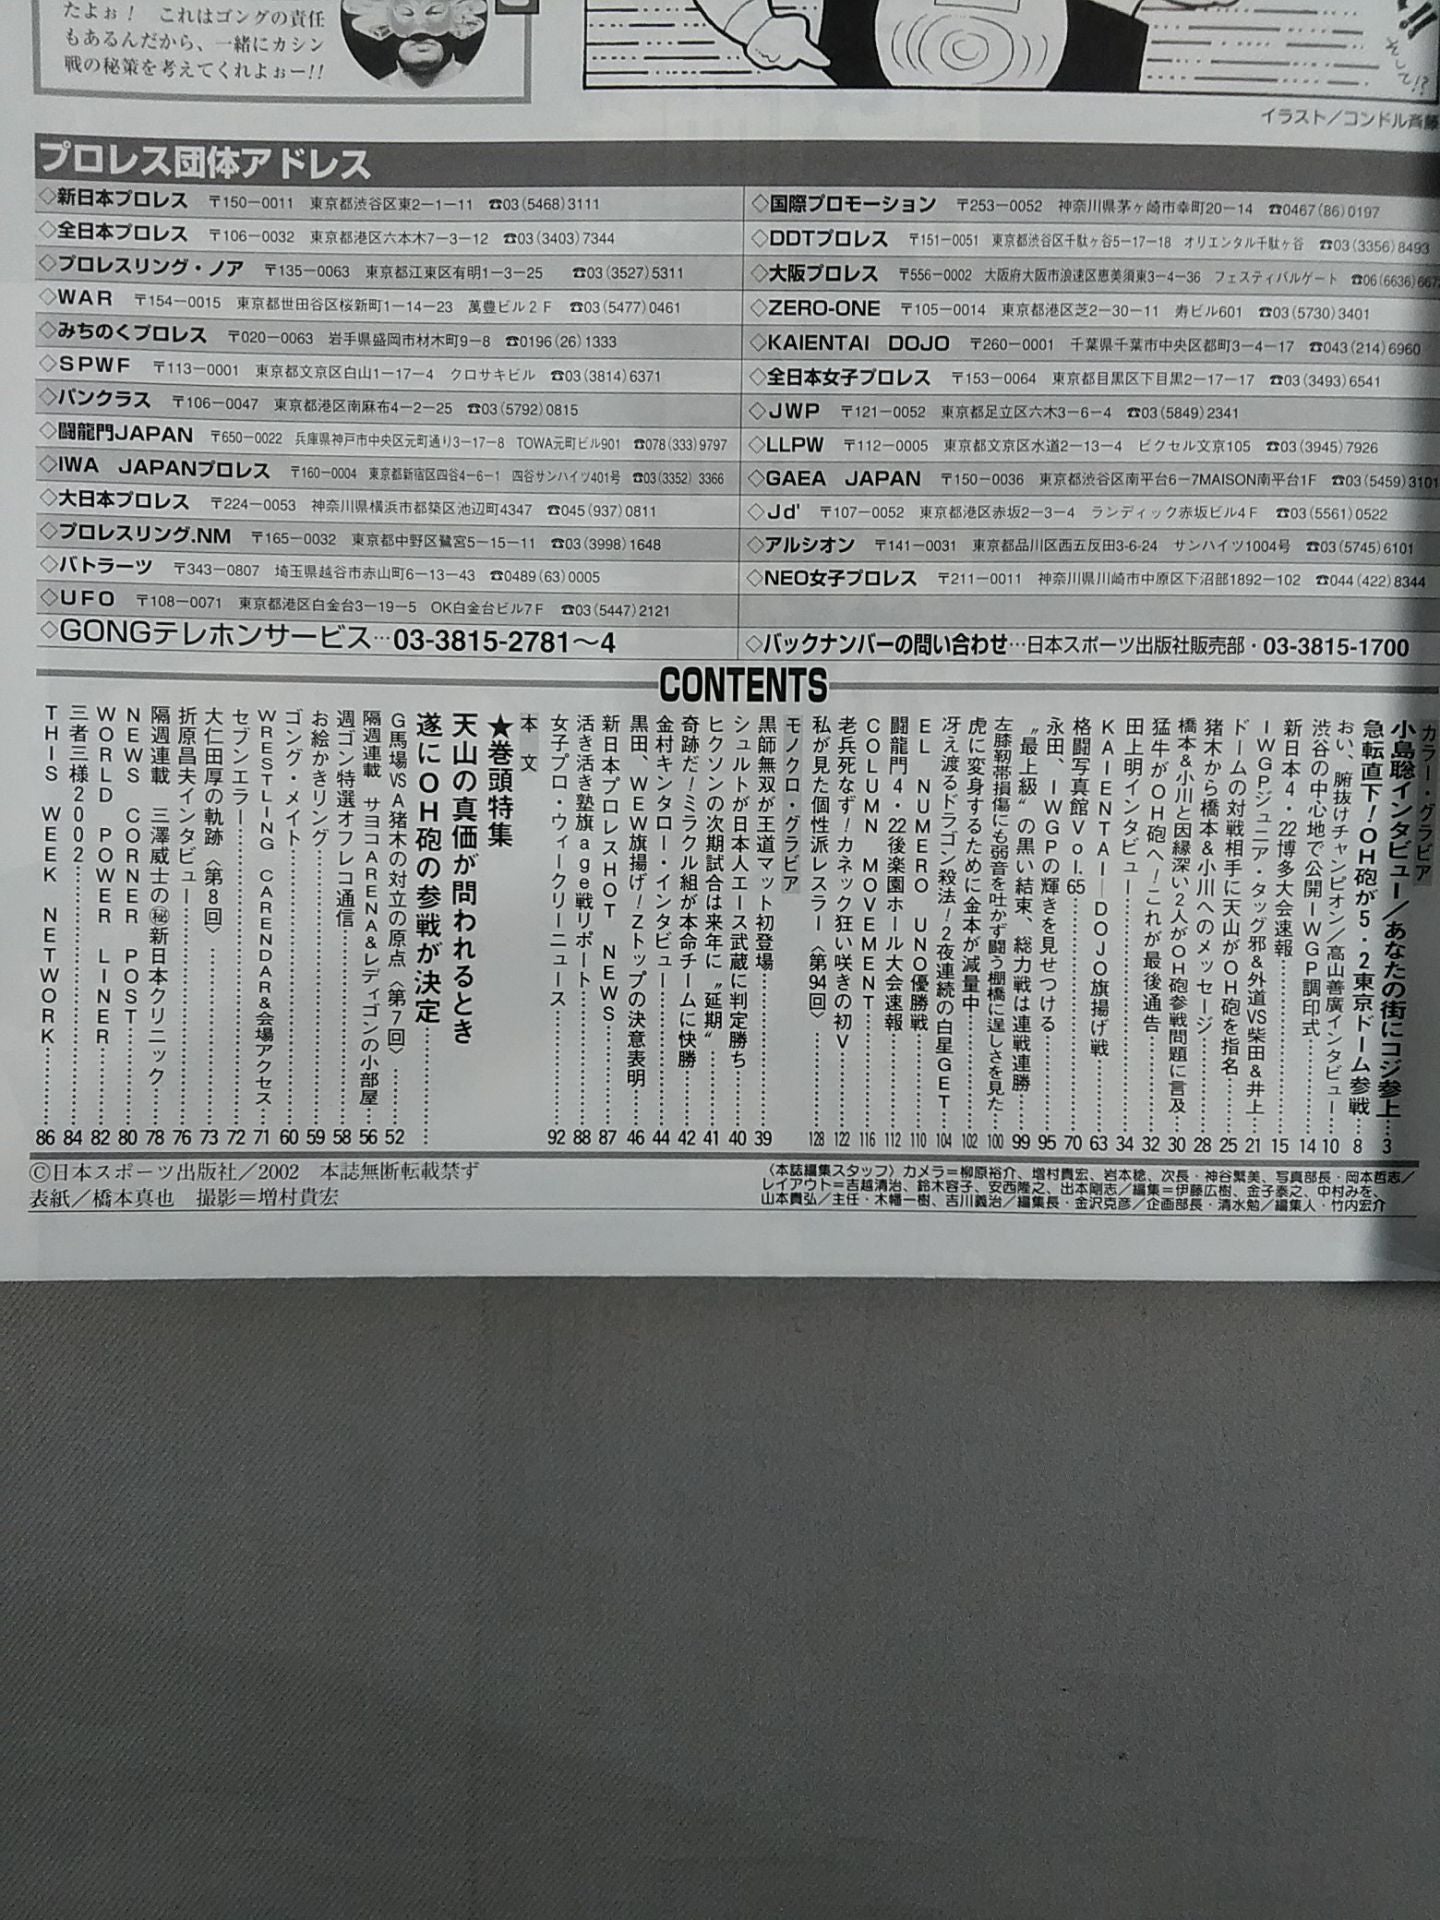 たよぉ！　これはゴングの責任
もあるんだから、一緒にカシン
戦の秘策を考えてくれよぉー!!
そして!?
イラスト／コンドル斉藤
プロレス団体アドレス
◇新日本プロレス　〒150－0011　東京都渋谷区東2－1－11　☎03(5468)3111
◇全日本プロレス　〒106－0032　東京都港区六本木7－3－12　☎03(3403)7344
◇プロレスリング・ノア　〒135－0063　東京都江東区有明1－3－25　☎03(3527)5311
◇WAR　〒154－0015　東京都世田谷区桜新町1－14－23　萬豊ビル2F　☎03(5477)0461
◇みちのくプロレス　〒020－0063　岩手県盛岡市材木町9－8　☎0196(26)1333
◇SPWF　〒113－0001　東京都文京区白山1－17－4　クロサキビル　☎03(3814)6371
◇パンクラス　〒106－0047　東京都港区南麻布4－2－25　☎03(5792)0815
◇闘龍門JAPAN　〒650－0022　兵庫県神戸市中央区元町通り3－17－8　TOWA元町ビル901　☎078(333)9797
◇IWA　JAPANプロレス　〒160－0004　東京都新宿区四谷4－6－1　四谷サンハイツ401号　☎03(3352)3366
◇大日本プロレス　〒224－0053　神奈川県横浜市都築区池辺町4347　☎045(937)0811
◇プロレスリング.NM　〒165－0032　東京都中野区鷺宮5－15－11　☎03(3998)1648
◇バトラーツ　〒343－0807　埼玉県越谷市赤山町6－13－43　☎0489(63)0005
◇UFO　〒108－0071　東京都港区白金台3－19－5　OK白金台ビル7F　☎03(5447)2121
◇GONGテレホンサービス…03-3815-2781～4
◇国際プロモーション　〒253－0052　神奈川県茅ヶ崎市幸町20－14　☎0467(86)0197
◇DDTプロレス　〒151－0051　東京都渋谷区千駄ヶ谷5－17－18　オリエンタル千駄ヶ谷　☎03(3356)8493
◇大阪プロレス　〒556－0002　大阪府大阪市浪速区恵美須東3－4－36　フェスティバルゲート　☎06(6636)667
◇ZERO-ONE　〒105－0014　東京都港区芝2－30－11　寿ビル601　☎03(5730)3401
◇KAIENTAI　DOJO　〒260－0001　千葉県千葉市中央区都町3－4－17　☎043(214)6960
◇全日本女子プロレス　〒153－0064　東京都目黒区下目黒2－17－17　☎03(3493)6541
◇JWP　〒121－0052　東京都足立区六木3－6－4　☎03(5849)2341
◇LLPW　〒112－0005　東京都文京区水道2－13－4　ピクセル文京105　☎03(3945)7926
◇GAEA　JAPAN　〒150－0036　東京都渋谷区南平台6－7MAISON南平台1F　☎03(5459)3101
◇Jd'　〒107－0052　東京都港区赤坂2－3－4　ランディック赤坂ビル4F　☎03(5561)0522
◇アルシオン　〒141－0031　東京都品川区西五反田3-6-24　サンハイツ1004号　☎03(5745)6101
◇NEO女子プロレス　〒211－0011　神奈川県川崎市中原区下沼部1892－102　☎044(422)8344
◇バックナンバーの問い合わせ…日本スポーツ出版社販売部・03-3815-1700
CONTENTS
カラー・グラビア
小島聡インタビュー／あなたの街にコジ参上…3
急転直下！OH砲が5・2東京ドーム参戦……8
おい、腑抜けチャンピオン／高山善廣インタビュー…10
渋谷の中心地で公開IWGP調印式……14
新日本4・22博多大会速報……15
IWGPジュニア・タッグ邪＆外道VS柴田＆井上…21
ドームの対戦相手に天山がOH砲を指名……25
猪木から橋本＆小川へのメッセージ……28
橋本＆小川と因縁深い2人がOH砲参戦問題に言及…30
猛牛がOH砲へ！これが最後通告……32
田上明インタビュー……34
KAIENTAI―DOJO旗揚げ戦……63
格闘写真館Vol.65……70
永田、IWGPの輝きを見せつける……95
“最上級”の黒い結束、総力戦は連戦連勝……99
左膝靭帯損傷にも弱音を吐かず闘う棚橋に逞しさを見た…100
虎に変身するために金本が減量中……102
冴え渡るドラゴン殺法！2夜連続の白星GET…104
EL　NUMERO　UNO優勝戦……110
闘龍門4・22後楽園ホール大会速報……112
COLUMN　MOVEMENT……116
老兵死なず！カネック狂い咲きの初V……122
私が見た個性派レスラー〈第94回〉……128
モノクロ・グラビア
黒師無双が王道マット初登場……39
シュルトが日本人エース武蔵に判定勝ち……40
ヒクソンの次期試合は来年に“延期”……41
奇跡だ！ミラクル組が本命チームに快勝……42
金村キンタロー・インタビュー……44
黒田、WEW旗揚げ！Zトップの決意表明……46
新日本プロレスHOT　NEWS……87
活き活き塾旗age戦リポート……88
女子プロ・ウィークリーニュース……92
本　文
★巻頭特集
天山の真価が問われるとき
遂にOH砲の参戦が決定……
G馬場VSA猪木の対立の原点〈第7回〉……52
隔週連載　サヨコARENA＆レディゴンの小部屋…56
週ゴン特選オフレコ通信……58
お絵かきリング……59
ゴング・メイト……60
WRESTLING　CARENDAR＆会場アクセス…71
セブンエラー……72
大仁田厚の軌跡〈第8回〉……73
折原昌夫インタビュー……76
隔週連載　三澤威士の㊙新日本クリニック…78
NEWS　CORNER　POST……80
WORLD　POWER　LINER……82
三者三様2002……84
THIS　WEEK　NETWORK……86
Ⓒ日本スポーツ出版社／2002　本誌無断転載禁ず
表紙／橋本真也　撮影＝増村貴宏
〈本誌編集スタッフ〉カメラ＝柳原裕介、増村貴宏、岩本稔、次長・神谷繁美、写真部長・岡本哲志／
レイアウト＝吉越清治、鈴木容子、安西隆之、出本剛志／編集＝伊藤広樹、金子泰之、中村みを、
山本貴弘／主任・木幡一樹、吉川義治／編集長・金沢克彦／企画部長・清水勉／編集人・竹内宏介